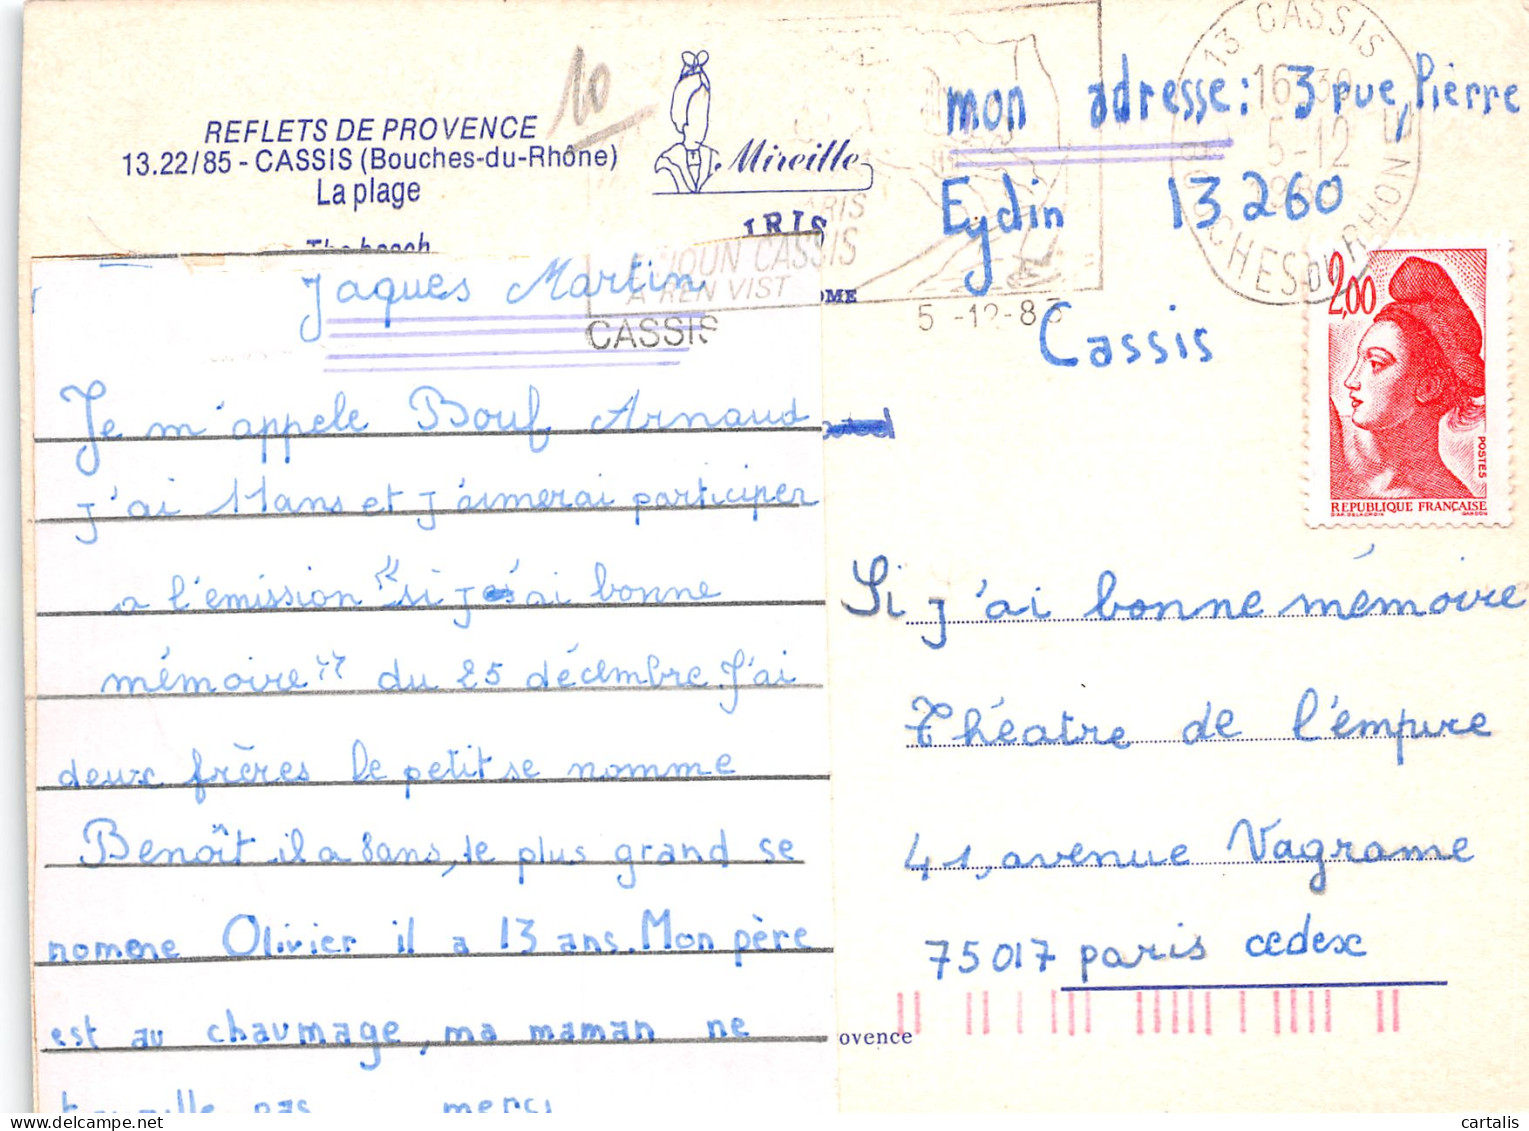 REFLETS DE PROVENCE
13.22/85 - CASSIS (Bouches-du-Rhône)
La plage
The beach
10
Mireille
IRIS
Jaques Martin
Je m'appele Bouf Arnaud
j'ai 11 ans et j'aimerai participer
a l'émission "si j'ai bonne
mémoire" du 25 décembre J'ai
deux frères le petit se nomme
Benoît il a 8 ans, le plus grand se
nomme Olivier il a 13 ans. Mon père
est au chaumage, ma maman ne
travaille pas merci
ovence
CASSIS
A REN VIST
CASSIS
5 -12-85
13 CASSIS
16 30
5-12
BOUCHES DU RHONE
mon adresse: 3 rue, Pièrre
Eydin 13 260
Cassis
2,00
POSTES
REPUBLIQUE FRANÇAISE
D'AP. DELACROIX GANDON
Si j'ai bonne mémoire
Théatre de l'empire
41, avenue Vagrame
75017 paris cedex
cartalis